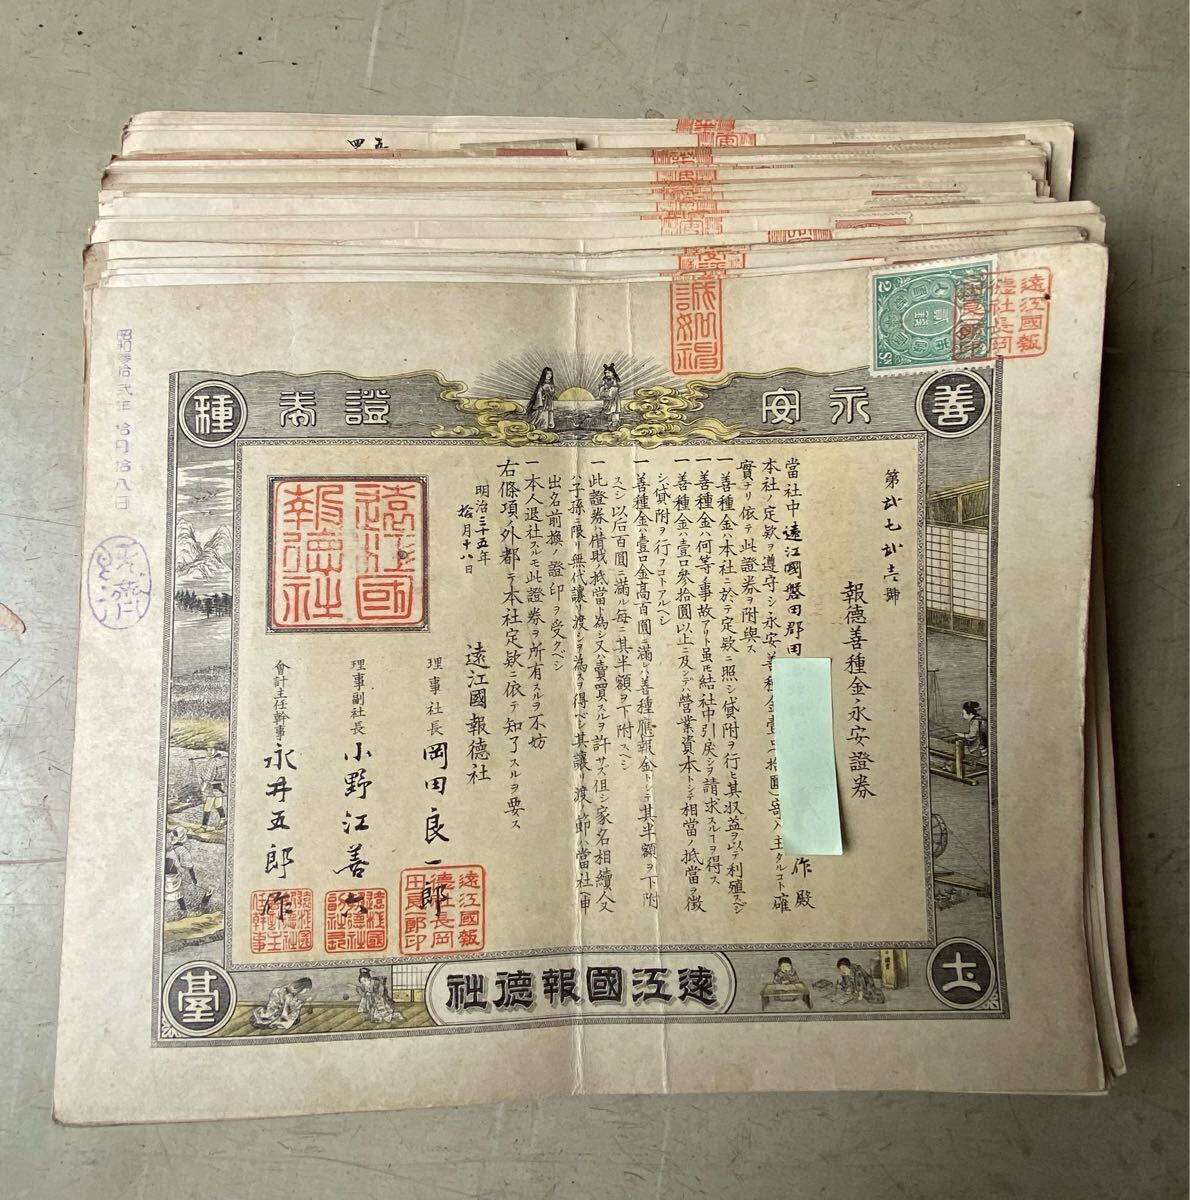 善
永安
證券
種
土
臺
遠江國報德社
第弐七弐壱號
報德善種金永安證券
當社中遠江國磐田郡田
作殿
本社ノ定欵ヲ遵守シ永安善種金壹口
實ナリ依テ此證券ヲ附與ス
一善種金ハ本社ニ於テ定欵ニ照シ貸附ヲ行ヒ其収益ヲ以テ利殖スベシ
一善種金ハ何等事故アリト虽モ結社中引戾シヲ請求スルヿヲ得ス
一善種金ハ壹口參拾圓以上ニ及ンデハ營業資本トシテ相當ノ抵當ヲ徴
シ貸附ヲ行フコトアルベシ
一善種金ハ壹口金高百圓ニ滿レハ善種應報金トシテ其半額ヲ下附
スベシ以后百圓ニ滿ル每ニ其半額ヲ下附スベシ
一此證券ハ借財ノ抵當ト為シ又ハ賣買スルヲ許サス但シ家名相續人又
ハ子孫ニ限リ無代讓リ渡シヲ為スヲ得ベシ其讓リ渡ノ節ハ當社ヘ申
出名前換ノ證印ヲ受クベシ
一本人退社スルモ此證券ヲ所有スルヲ不妨
右條項ノ外都テ本社定欵ニ依テ知了スルヲ要ス
明治三十五年
拾月十八日
遠江國報德社
理事社長 岡田良一郎
理事副社長 小野江善六
會計主任幹事 永井五郎作
遠江國報德社
遠江國報德社長岡田良一郎印
遠江國報德社長岡田良一郎印
誠如神
2